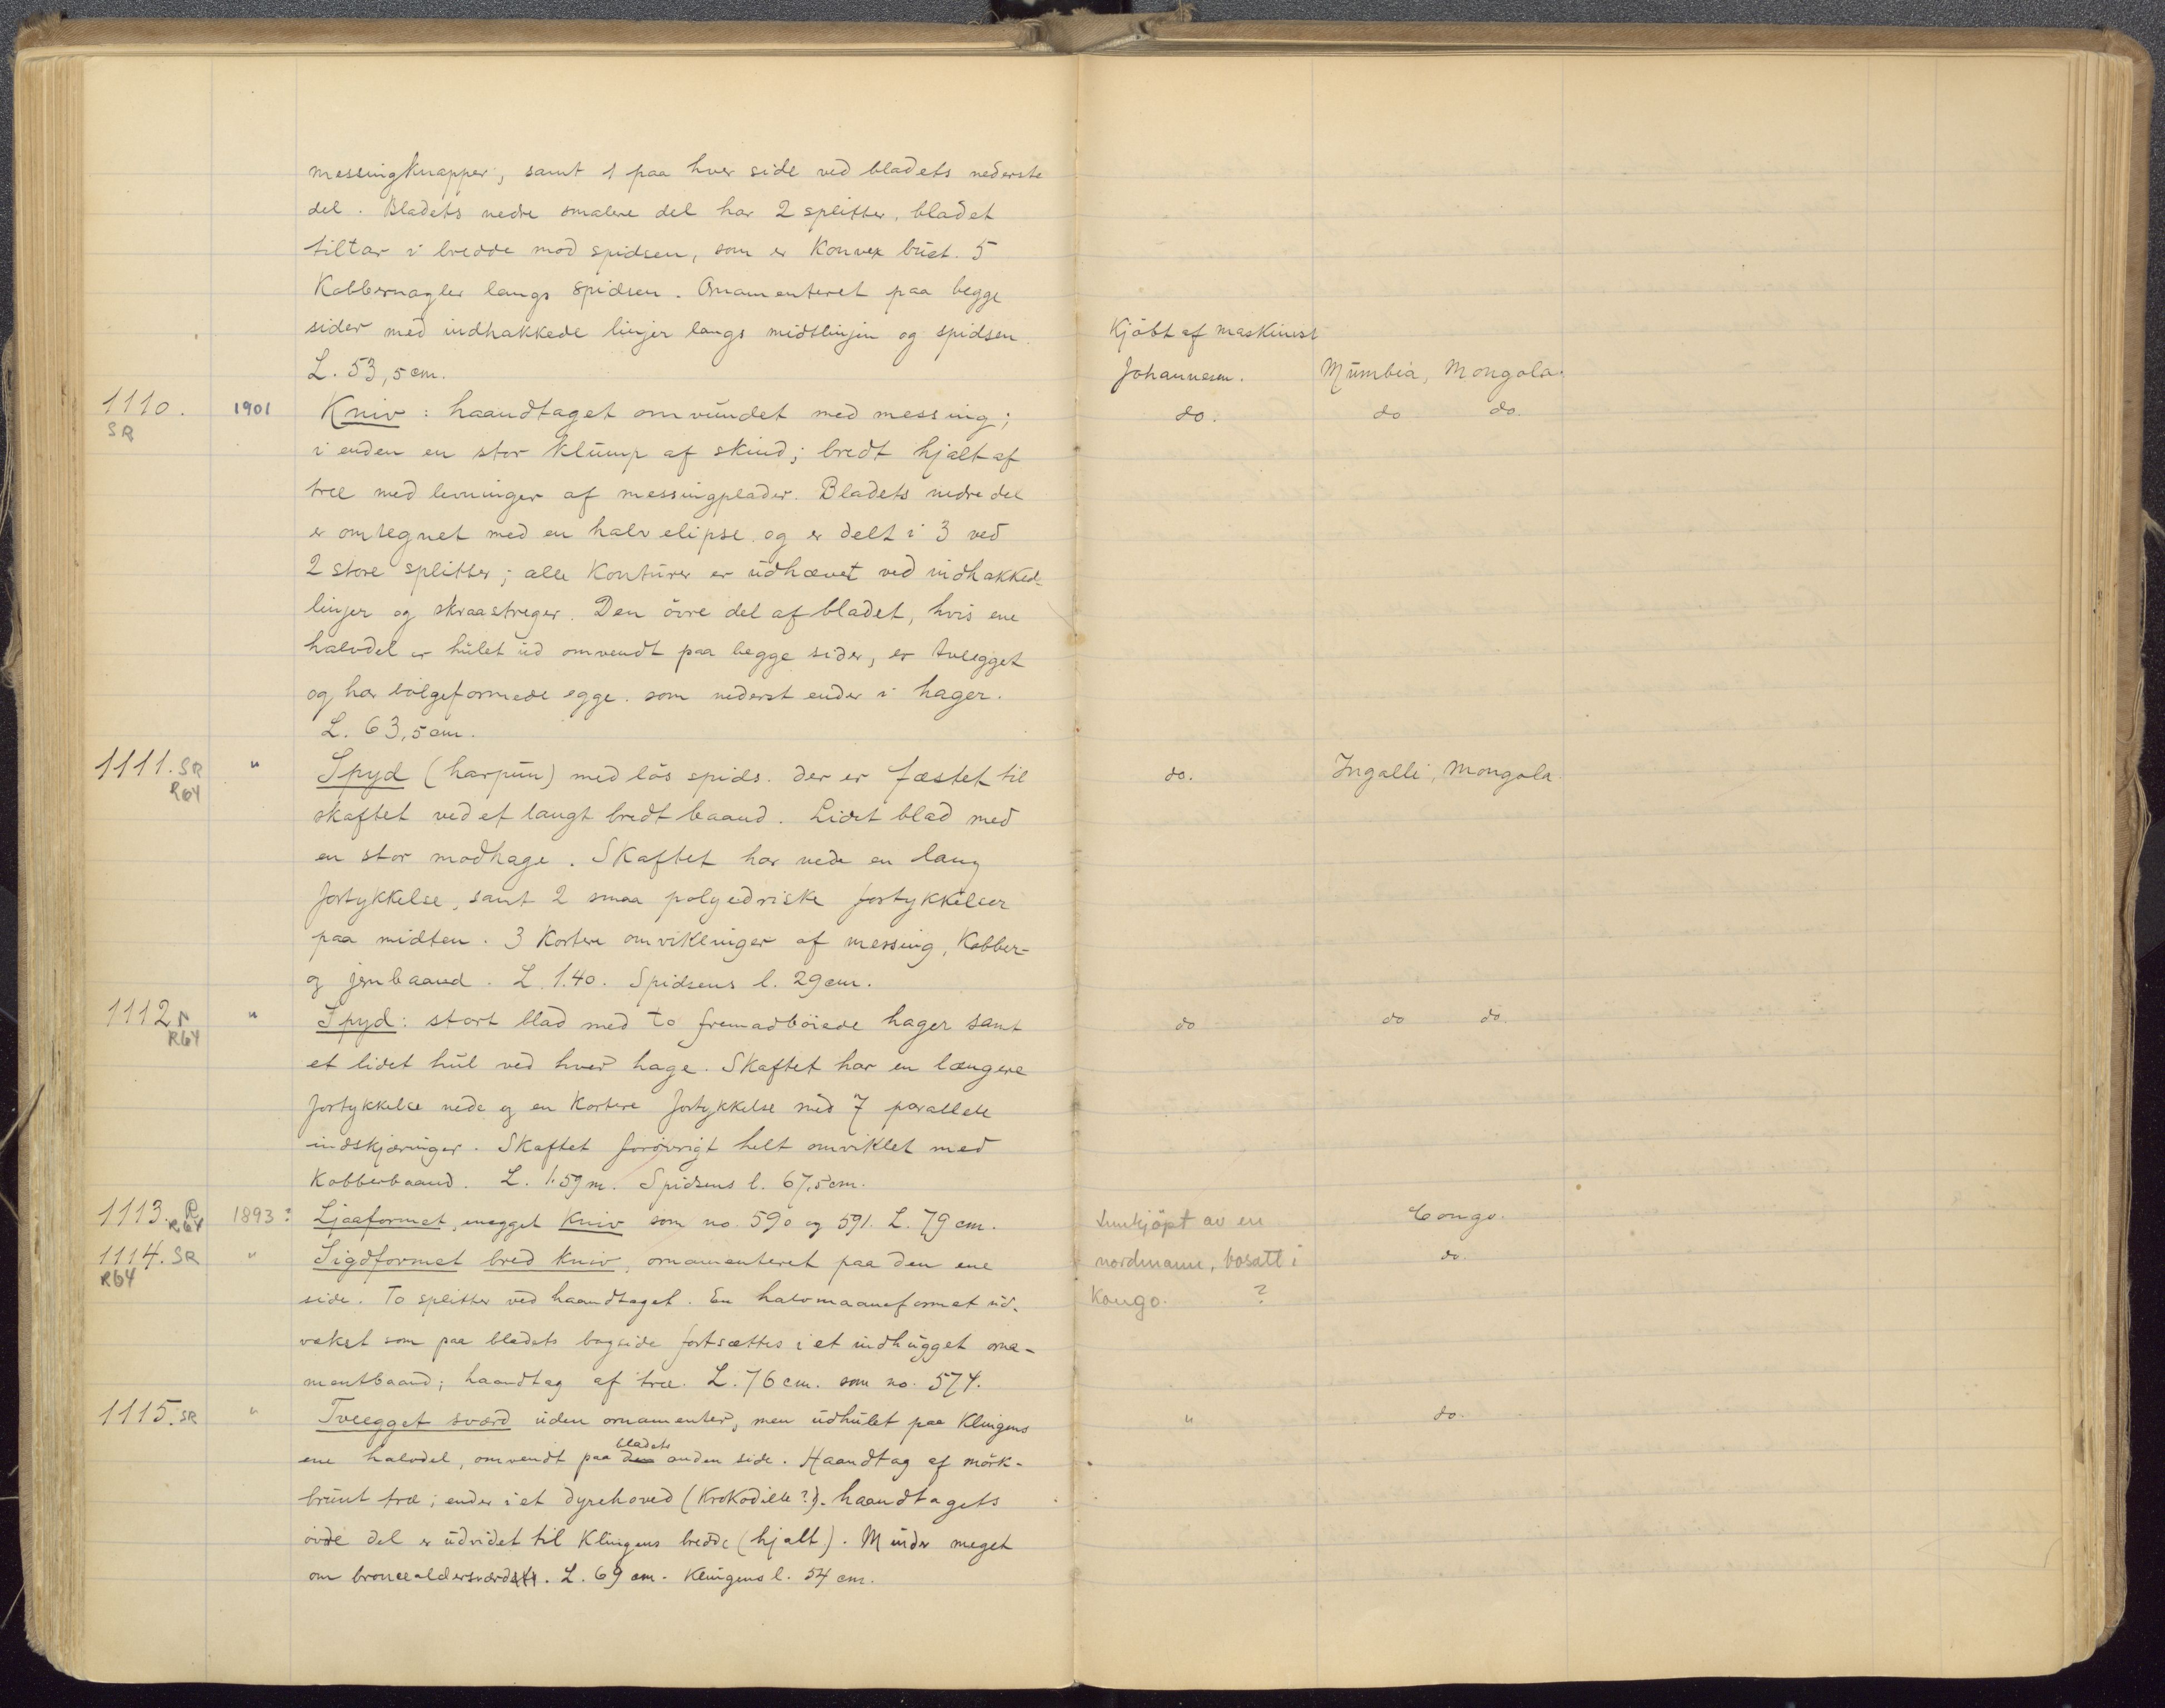 messingknapper, samt 1 paa hver side ved bladets nederste
del. Bladets nedre smalere del har 2 splitter, bladet
tiltar i bredde mod spidsen, som er Konvex buet. 5
Kobbernagler langs spidsen. Ornamenteret paa begge
sider med indhakkede linjer langs midtlinjen og spidsen. Kjöbt af maskinist
L. 53,5 cm. Johannesen. Mumbia, Mongala.
1110. SR 1901 Kniv: haandtaget omvundet med messing; do. do do.
i enden en stor klump af skind; bredt hjalt af
træ med levninger af messingplader. Bladets nedre del
er omtegnet med en halv elipse og er delt i 3 ved
2 store splitter; alle Konturer er udhævet ved indhakked-
linjer og skraastreger. Den övre del af bladet, hvis ene
halvdel er hulet ud omvendt paa begge sider, er tveegget
og har bölgeformede egge som nederst ender i hager.
L. 63,5 cm.
1111. SR R64 " Spyd (harpun) med lös spids. der er fæstet til do. Ingalli, Mongala.
skaftet ved et langt bredt baand. Lidet blad med
en stor modhage. Skaftet har nede en lang
fortykkelse, samt 2 smaa polyedriske fortykkelser
paa midten. 3 kortere omviklinger af messing, Kobber-
og jernbaand. L. 1.40. Spidsens l. 29 cm.
1112 R64 " Spyd: stort blad med to fremadböiede hager samt do do do.
et lidet hul ved hver hage. Skaftet har en længere
fortykkelse nede og en kortere fortykkelse med 7 parallele
indskjæringer. Skaftet forövrigt helt omviklet med
Kobberbaand. L. 1.59 m. Spidsens l. 67,5 cm.
1113. R R64 1893: Ljaaformet, enegget Kniv som no. 590 og 591. L. 79 cm. Innkjöpt av en Congo.
1114. SR R64 " Sigdformet bred kniv, ornamenteret paa den ene nordmann, bosatt i do.
side. To splitter ved haandtaget. En halvmaaneformet ud- Kongo. ?
vekst som paa bladets bagside fortsættes i et indhugget orna-
mentbaand; haandtag af træ. L. 76 cm. som no. 574.
1115. SR " Tveegget sværd uden ornamenter, men udhulet paa Klingens " do.
ene halvdel, omvendt paa bladets anden side. Haandtag af mörk-
brunt træ; ender i et dyrehoved (Krokodille?). haandtagets
övre del er udvidet til Klingens bredde (hjalt). Minder meget
om broncealdersværd. L. 69 cm. Klingens l. 54 cm.